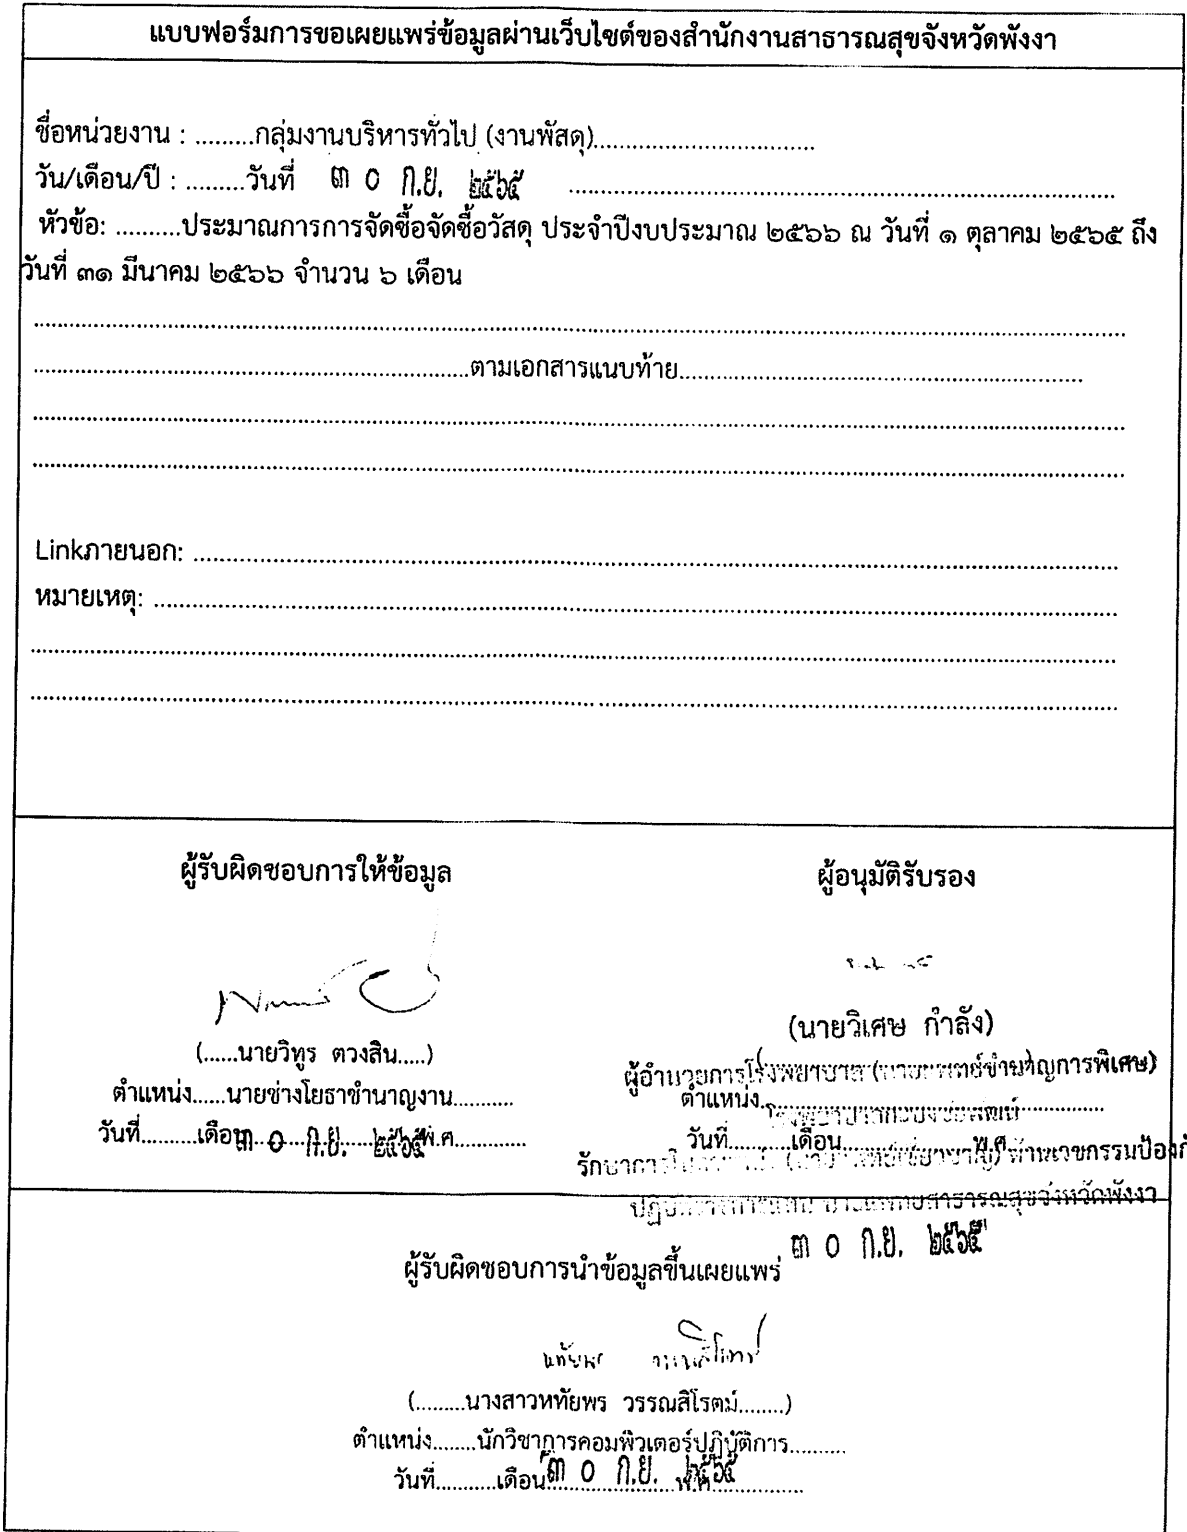 แบบฟอร์มการขอเผยแพร่ข้อมูลผ่านเว็บไซต์ของสำนักงานสาธารณสุขจังหวัดพังงา
ชื่อหน่วยงาน : .........กลุ่มงานบริหารทั่วไป (งานพัสดุ).................................
วัน/เดือน/ปี : .........วันที่ ๓ ๐ ก.ย. ๒๕๖๕ ....................................................................................
หัวข้อ: ..........ประมาณการการจัดซื้อจัดซื้อวัสดุ ประจำปีงบประมาณ ๒๕๖๖ ณ วันที่ ๑ ตุลาคม ๒๕๖๕ ถึง
วันที่ ๓๑ มีนาคม ๒๕๖๖ จำนวน ๖ เดือน
..................................................................ตามเอกสารแนบท้าย.............................................................
Linkภายนอก: ............................................................
หมายเหตุ: ............................................................
ผู้รับผิดชอบการให้ข้อมูล
(......นายวิทูร ตวงสิน.....)
ตำแหน่ง......นายช่างโยธาชำนาญงาน...........
วันที่..........เดือน ๓ ๐ ก.ย. ๒๕๖๕ พ.ศ.............
ผู้อนุมัติรับรอง
(นายวิเศษ กำลัง)
ผู้อำนวยการโรงพยาบาล (นายแพทย์ชำนาญการพิเศษ)
ตำแหน่ง............................................................
วันที่..........เดือน......................พ.ศ.
รักษาการ ด้านเวชกรรมป้องกั
สาธารณสุขจังหวัดพังงา
๓ ๐ ก.ย. ๒๕๖๕
ผู้รับผิดชอบการนำข้อมูลขึ้นเผยแพร่
(.........นางสาวหทัยพร วรรณสิโรตม์........)
ตำแหน่ง........นักวิชาการคอมพิวเตอร์ปฏิบัติการ..........
วันที่...........เดือน ๓ ๐ ก.ย. ๒๕๖๕ พ.ศ...............